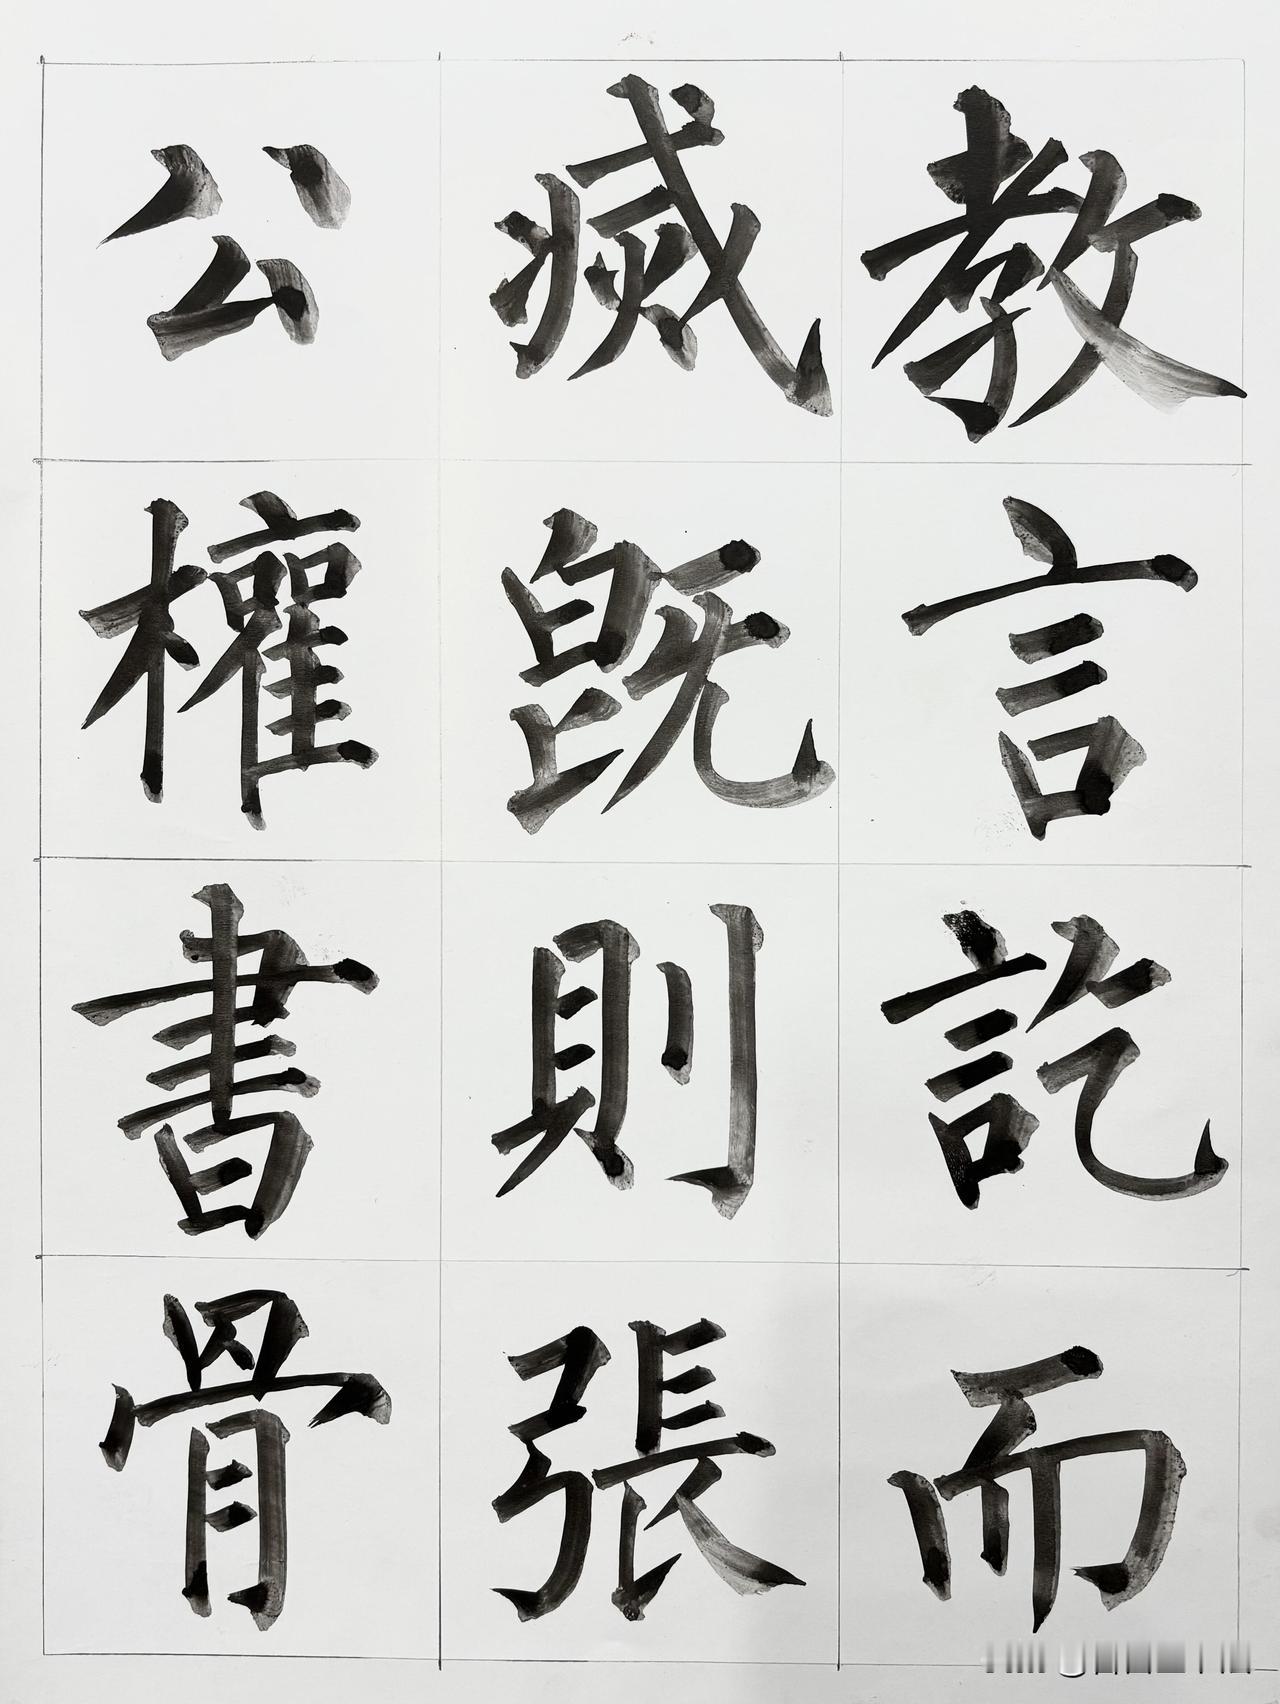 教言訖而
滅既則張
公權書骨